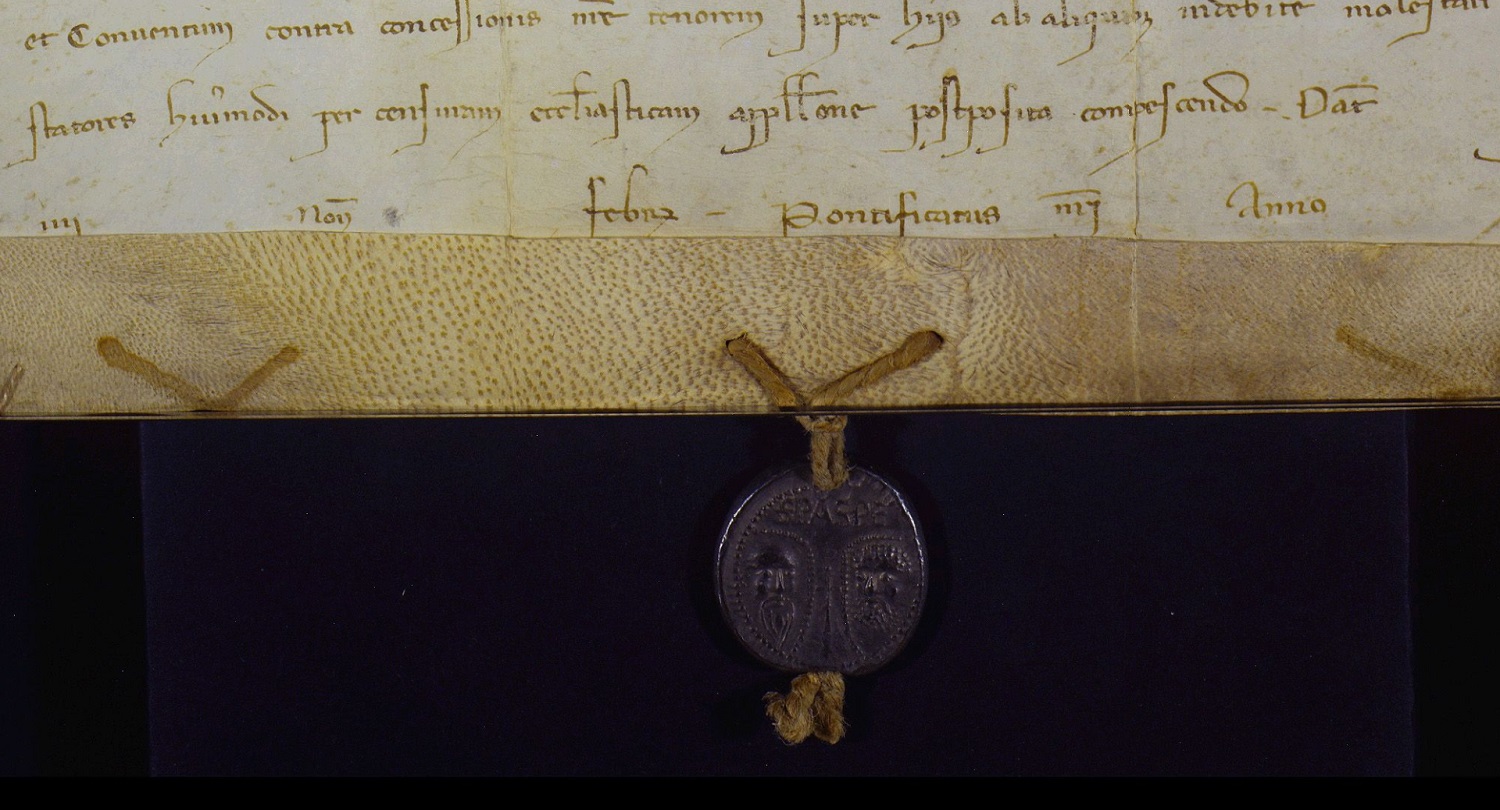 et Conventum contra concessionis nr̄e tenorem super hijs ab aliquibus indebite molestari
statores huiꝰmodi per censuram eccl̄iasticam appll̄one postposita compescendo - Dat̄
iiii Noñ febr̄ - Pontificatus nr̄i Anno
SPASPE